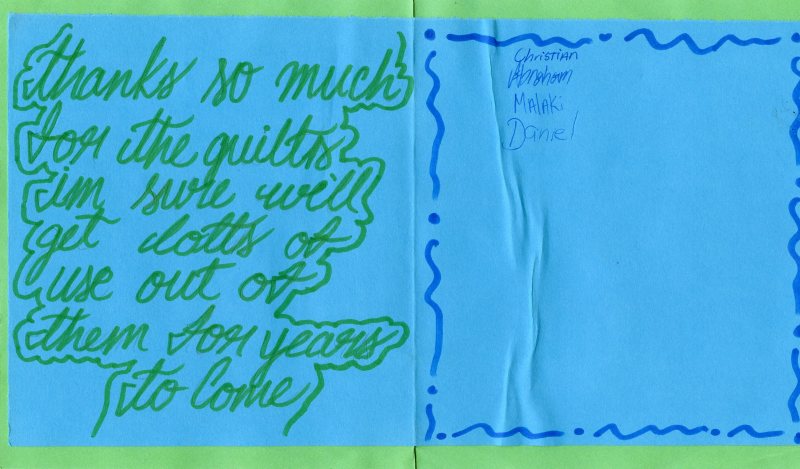 thanks so much
for the quilts
im sure we'll
get lotts of
use out of
them for years
to come
Christian
Abraham
Malaki
Daniel